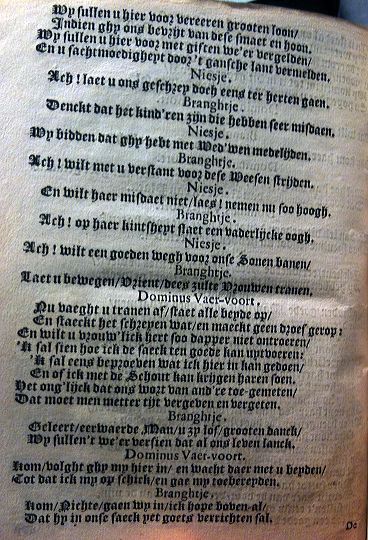 Wy sullen u hier voor vereeren grooten loon/
Indien ghy ons bevrijt van dese smaet en hoon.
Wy sullen u hier voor met giften we'er vergelden/
En u sachtmoedigheyt door 't gansche lant vermelden.
Niesje.
Ach! laet u ons geschrey doch eens ter herten gaen.
Branghtje.
Denckt dat het kind'ren zijn die hebben seer misdaen.
Niesje.
Wy bidden dat ghy hebt met Wed'wen medelijden.
Branghtje.
Ach! wilt met u verstant voor dese Weesen strijden.
Niesje.
En wilt haer misdaet niet/ laes! nemen nu soo hoogh.
Branghtje.
Ach! op haer kintsheyt slaet een vaderlijcke oogh.
Niesje.
Ach! wilt een goeden wegh voor onse Sonen banen/
Branghtje.
Laet u bewegen/ Vrient/ dees zulte Vrouwen tranen.
Dominus Vaer-voort.
Nu vaeght u tranen af/ staet alle beyde op/
En staeckt het schreyen wat/ en maeckt geen droef gerop:
En wilt u vrouw'lick hert soo dapper niet ontroeren/
'k Sal sien hoe ick de saeck ten goede kan uytvoeren:
'k Sal eens beproeven wat ick hier in kan gedoen/
En of ick met de Schout kan krijgen haren soen.
Het ong'lijck dat ons wort van and're toe-gemeten/
Dat moet men metter tijt vergeven en vergeten.
Branghtje.
Geleert/ eerwaerde Man/ u zy lof/ grooten danck/
Wy sullen't we'er versien dat al ons leven lanck.
Dominus Vaer-voort.
Kom/ volght ghy my hier in/ en wacht daer met u beyden/
Tot dat ick my op schick/ en gae my toebereyden.
Branghtje.
Kom/ Nichte/ gaen wy in/ ick hope boven-al/
Dat hy in onse saeck yet goets verrichten sal.